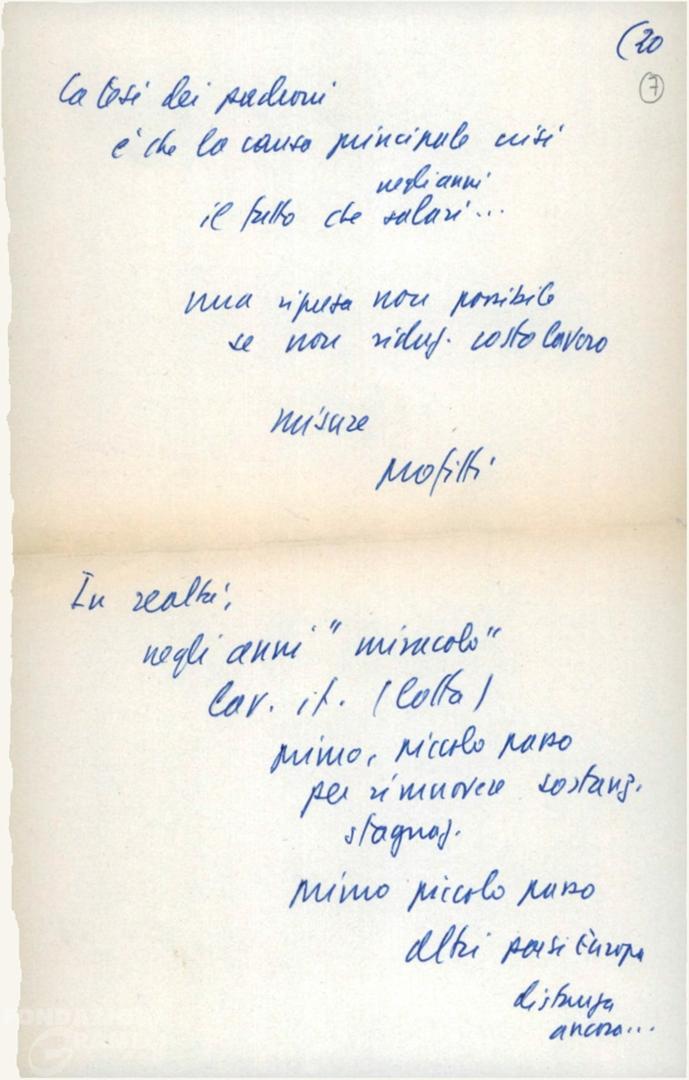 (20
7
la tesi dei padroni
è che la causa principale crisi
negli anni
il fatto che salari...
una ripresa non possibile
se non riduz. costo lavoro
misure
profitti
In realtà,
negli anni "miracolo"
lav. it. (lotta)
primo, piccolo passo
per rimuovere sostanz.
stagnaz.
primo piccolo passo
altri paesi Europa
distanza
ancora...
FONDAZIONE
GRAMSCI